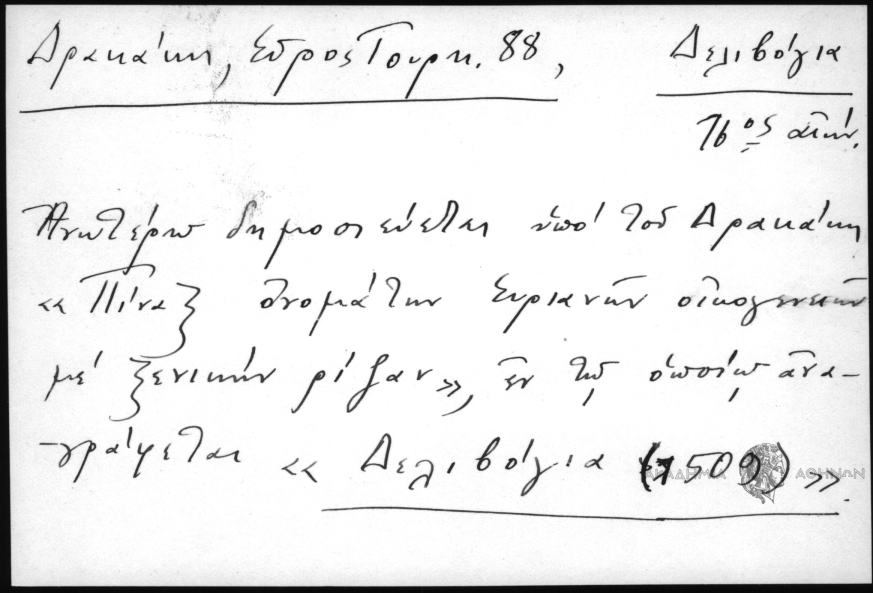 Δρακάκη, Σῦρος Τουρκ. 88,
Δελιβόγια
16ος αἰών.
Ἀνωτέρω δημοσιεύεται ὑπό τοῦ Δρακάκη
«Πίναξ ὀνομάτων Συριανῶν οἰκογενειῶν
μέ ξενικήν ρίζαν», ἐν τῷ ὁποίῳ ἀνα-
-γράφεται «Δελιβόγια (1509)».
ΑΚΑΔΗΜΙΑ ΑΘΗΝΩΝ